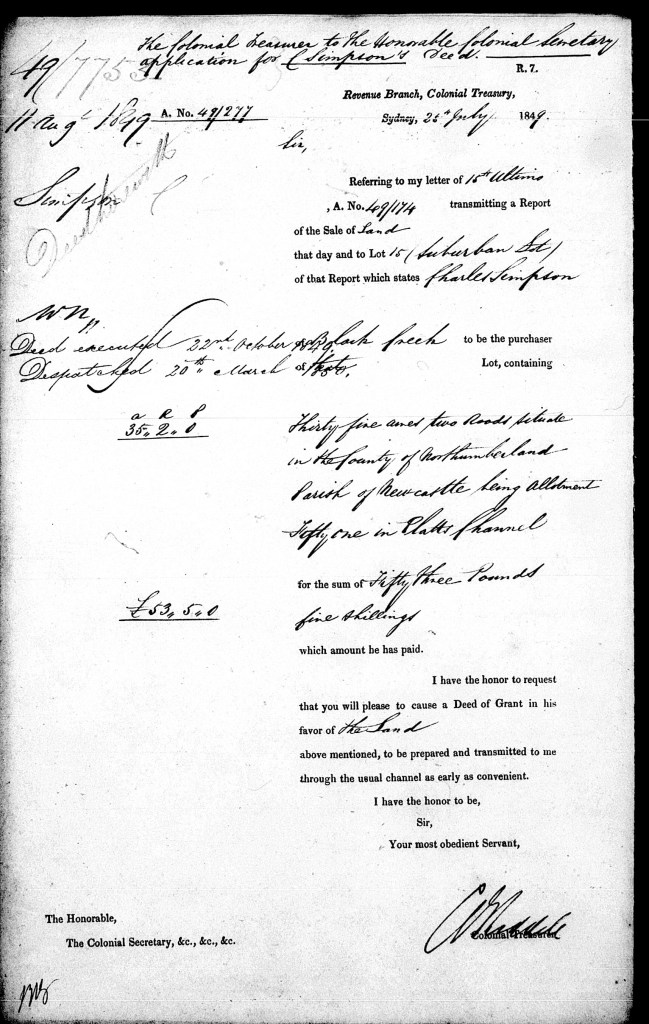 The Colonial Treasurer to the Honorable Colonial Secretary
application for C Simpson's Deed.
49/7753
R. 7.
Revenue Branch, Colonial Treasury,
11 Augt 1849 A. No. 49/277
Sydney, 25th July 1849.
Sir,
Simpson
Referring to my letter of 15th Ultimo
, A. No. 49/174 transmitting a Report
of the Sale of Land
that day and to Lot 15 (Suburban Lot)
of that Report which states Charles Simpson
of Black Creek to be the purchaser
Deed executed 22nd October 1849
of that Lot, containing
Despatched 20th March 1850.
a R P
35,, 2,, 0
Thirty five acres two Roods situate
in the County of Northumberland
Parish of Newcastle being Allotment
Fifty one in Platts Channel
for the sum of Fifty three Pounds
£53,, 5,, 0
five shillings
which amount he has paid.
I have the honor to request
that you will please to cause a Deed of Grant in his
favor of the Land
above mentioned, to be prepared and transmitted to me
through the usual channel as early as convenient.
I have the honor to be,
Sir,
Your most obedient Servant,
Colonial Treasurer
The Honorable,
The Colonial Secretary, &c., &c., &c.